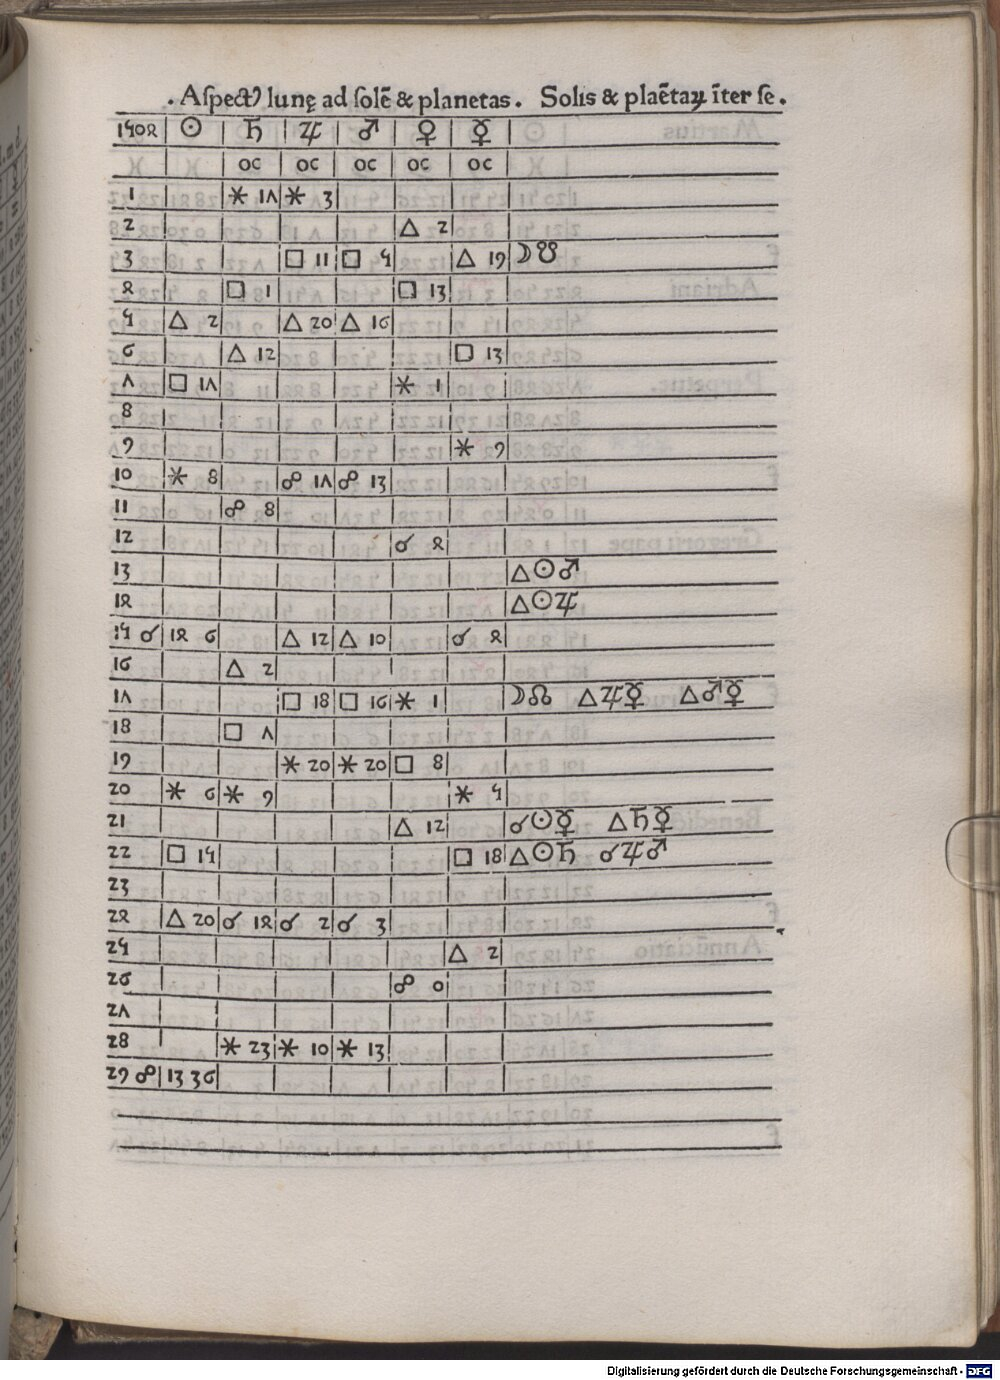 . Aſpectꝰ lunę ad ſolē & planetas . Solis & plaētaꝝ īter ſe .
1504 ☉ ♄ ♃ ♂ ♀ ☿
oc oc oc oc oc
1 ⚹ 17 ⚹ 3
2 △ 2
3 □ 11 □ 5 △ 19 ☽☋
4 □ 1 □ 13
5 △ 2 △ 20 △ 16
6 △ 12 □ 13
7 □ 17 ⚹ 1
8
9 ⚹ 9
10 ⚹ 8 ☍ 17 ☍ 13
11 ☍ 8
12 ☌ 4
13 △☉♂
14 △☉♃
15 ☌ 14 6 △ 12 △ 10 ☌ 4
16 △ 2
17 □ 18 □ 16 ⚹ 1 ☽☊ △♃☿ △♂☿
18 □ 7
19 ⚹ 20 ⚹ 20 □ 8
20 ⚹ 6 ⚹ 9 ⚹ 5
21 △ 12 ☌☉☿ △♄☿
22 □ 15 □ 18 △☉♄ ☌♃♂
23
24 △ 20 ☌ 14 ☌ 2 ☌ 3
25 △ 2
26 ☍ 0
27
28 ⚹ 23 ⚹ 10 ⚹ 13
29 ☍ 13 36
Digitalisierung gefördert durch die Deutsche Forschungsgemeinschaft - DFG